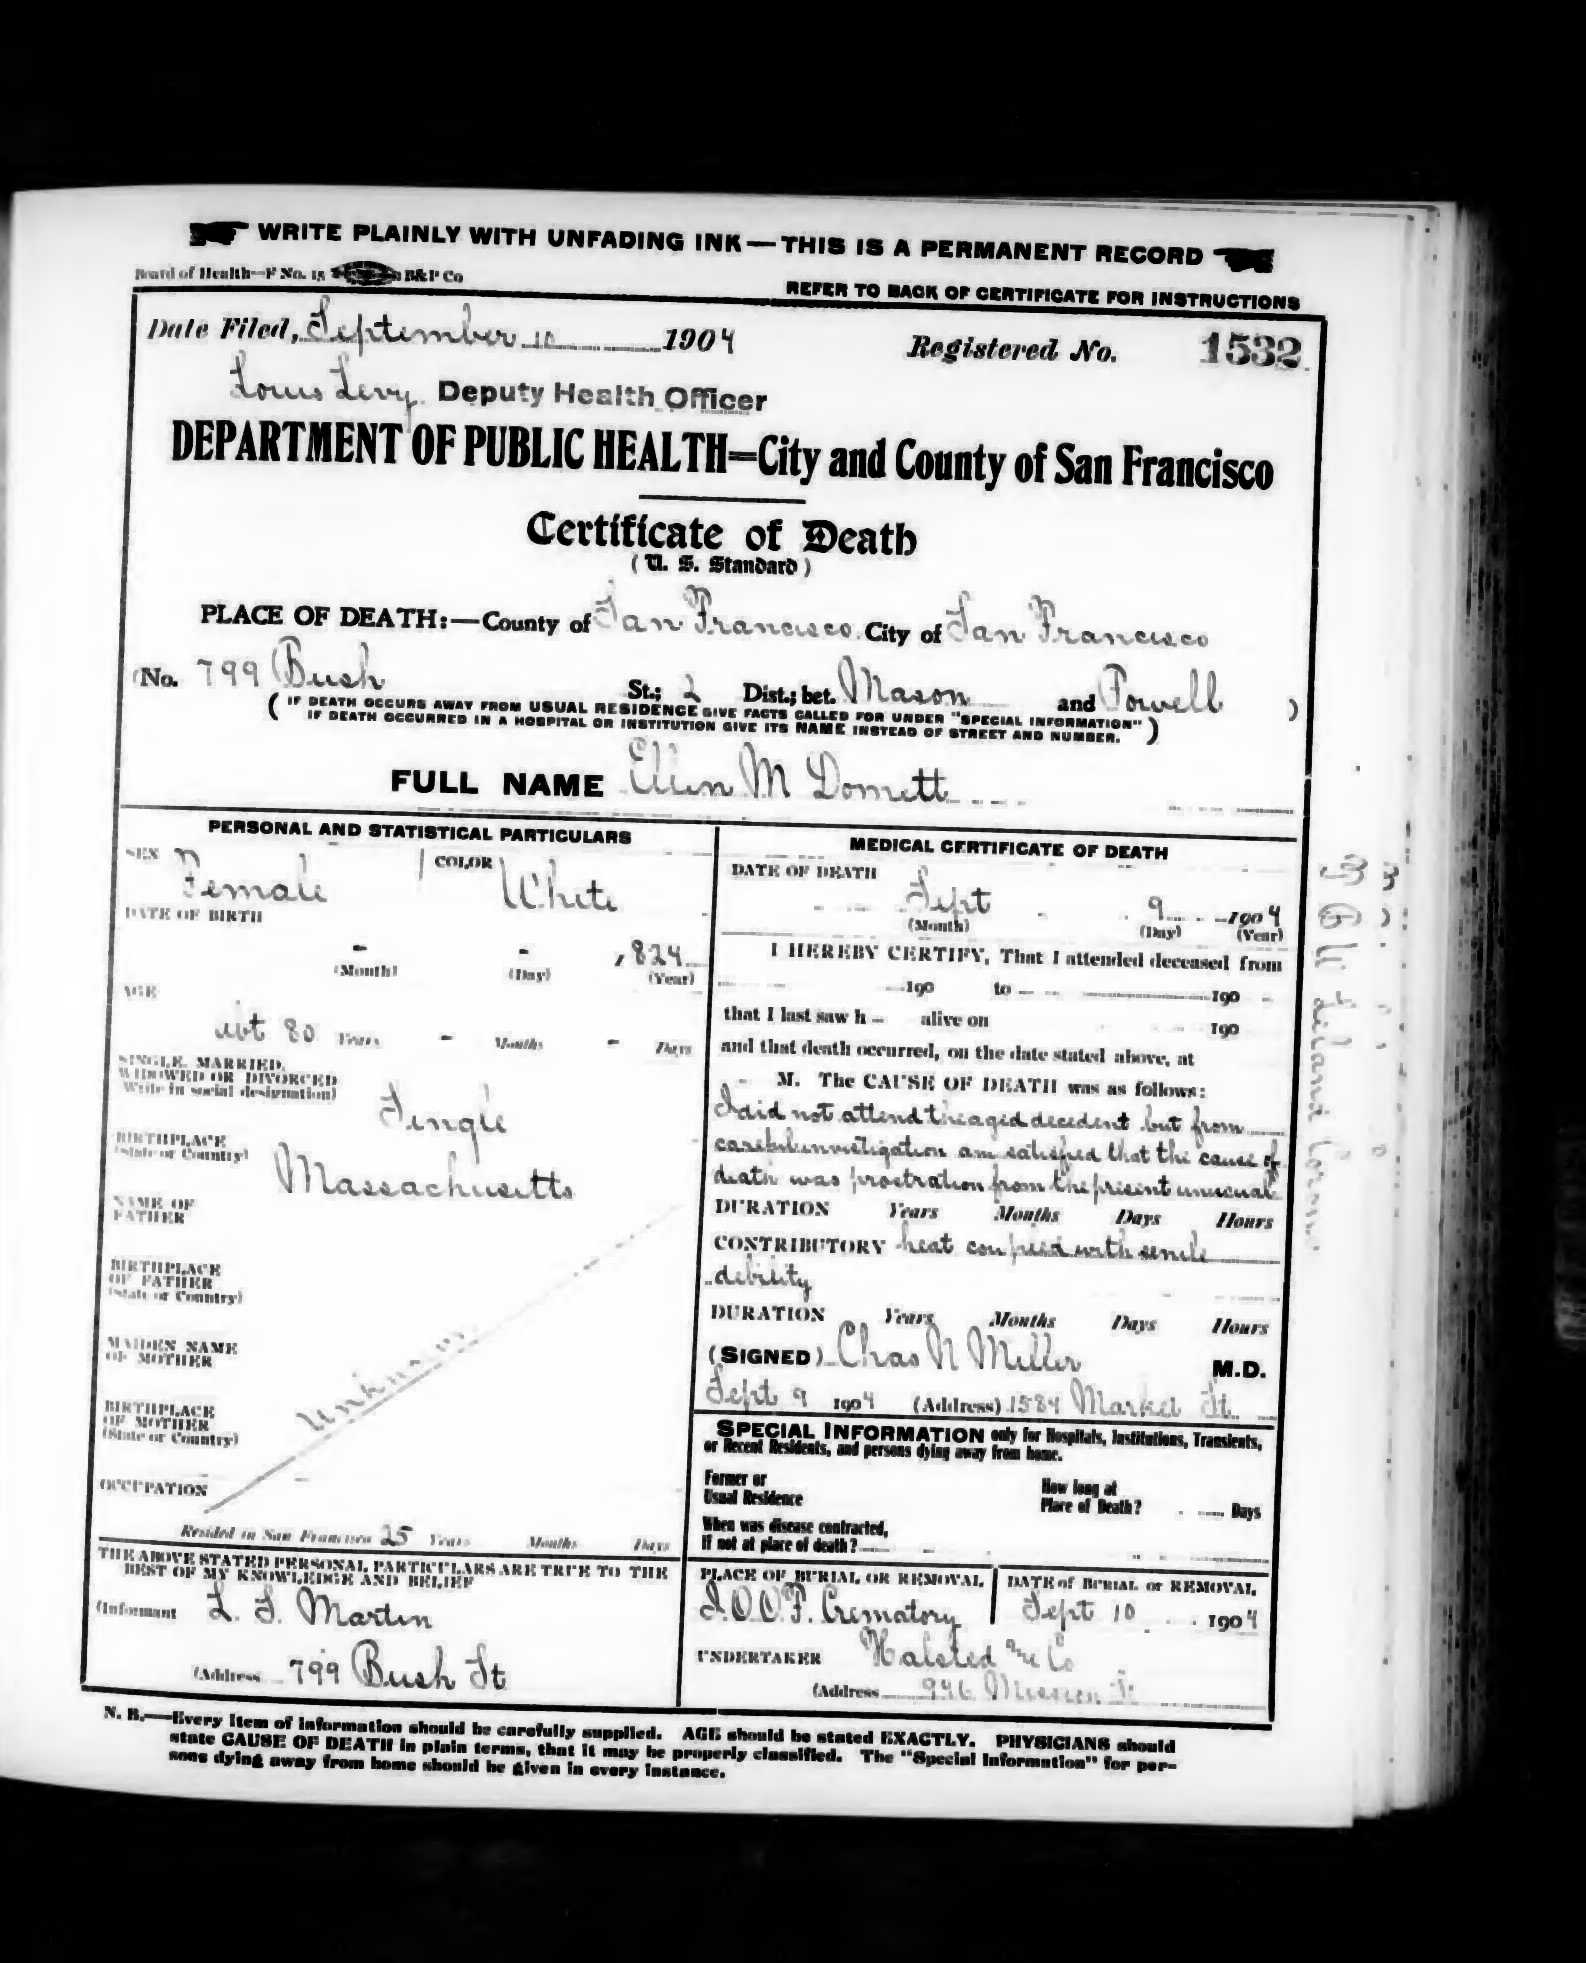 WRITE PLAINLY WITH UNFADING INK—THIS IS A PERMANENT RECORD
Board of Health—F No. 15 B&P Co
REFER TO BACK OF CERTIFICATE FOR INSTRUCTIONS
Date Filed, September 10 1904 Registered No. 1532
Louis Levy Deputy Health Officer
DEPARTMENT OF PUBLIC HEALTH=City and County of San Francisco
Certificate of Death
(U. S. Standard)
PLACE OF DEATH:—County of San Francisco City of San Francisco
(No. 799 Bush St.; 2 Dist.; bet. Mason and Powell )
( IF DEATH OCCURS AWAY FROM USUAL RESIDENCE GIVE FACTS CALLED FOR UNDER "SPECIAL INFORMATION"
IF DEATH OCCURRED IN A HOSPITAL OR INSTITUTION GIVE ITS NAME INSTEAD OF STREET AND NUMBER. )
FULL NAME Ellen M Domett
PERSONAL AND STATISTICAL PARTICULARS
SEX Female COLOR White
DATE OF BIRTH
- - , 824
(Month) (Day) (Year)
AGE
abt 80 Years - Months - Days
SINGLE, MARRIED,
WIDOWED OR DIVORCED
Write in social designation)
Single
BIRTHPLACE
(State or Country)
Massachusetts
NAME OF
FATHER
BIRTHPLACE
OF FATHER
(State or Country)
MAIDEN NAME
OF MOTHER
Unknown
BIRTHPLACE
OF MOTHER
(State or Country)
OCCUPATION
Resided in San Francisco 25 Years Months Days
THE ABOVE STATED PERSONAL PARTICULARS ARE TRUE TO THE
BEST OF MY KNOWLEDGE AND BELIEF
(Informant L. S. Martin
(Address 799 Bush St
MEDICAL CERTIFICATE OF DEATH
DATE OF DEATH
Sept 9 1904
(Month) (Day) (Year)
I HEREBY CERTIFY, That I attended deceased from
190 to 190
that I last saw h – alive on 190
and that death occurred, on the date stated above, at
- M. The CAUSE OF DEATH was as follows:
I did not attend the aged decedent but from
careful investigation am satisfied that the cause of
death was prostration from the present unusual
DURATION Years Months Days Hours
CONTRIBUTORY heat coupled with senile
debility
DURATION Years Months Days Hours
(SIGNED) Chas N Miller M.D.
Sept 9 1904 (Address) 1584 Market St.
SPECIAL INFORMATION only for Hospitals, Institutions, Transients,
or Recent Residents, and persons dying away from home.
Former or
Usual Residence
How long at
Place of Death? Days
When was disease contracted,
If not at place of death?
PLACE OF BURIAL OR REMOVAL
I.O.O.F. Crematory
DATE of BURIAL or REMOVAL
Sept 10 1904
UNDERTAKER Halsted & Co
(Address 946 Mission St
N. B.—Every item of information should be carefully supplied. AGE should be stated EXACTLY. PHYSICIANS should
state CAUSE OF DEATH in plain terms, that it may be properly classified. The "Special Information" for per-
sons dying away from home should be given in every instance.